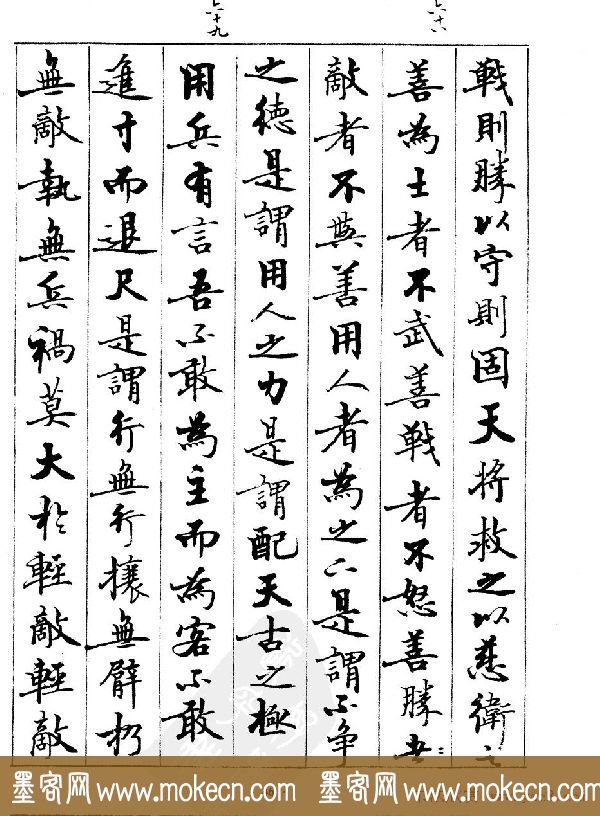 六十八
六十九
戰則勝以守則固天將救之以慈衛之
善為士者不武善戰者不怒善勝者
敵者不與善用人者為之下是謂不爭
之德是謂用人之力是謂配天古之極
用兵有言吾不敢為主而為客不敢
進寸而退尺是謂行無行攘無臂扔
無敵執無兵禍莫大於輕敵輕敵
墨客网 www.mokecn.com 墨客网 www.mokecn.com